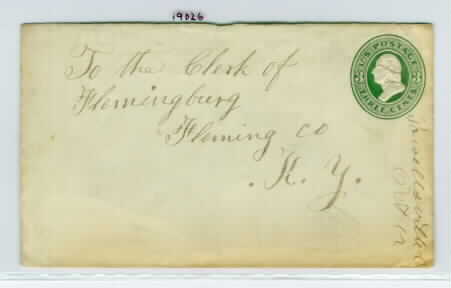 19026
U.S. POSTAGE
3 3
THREE CENTS
To the Clerk of
Flemingburg
Fleming co
. K. Y.